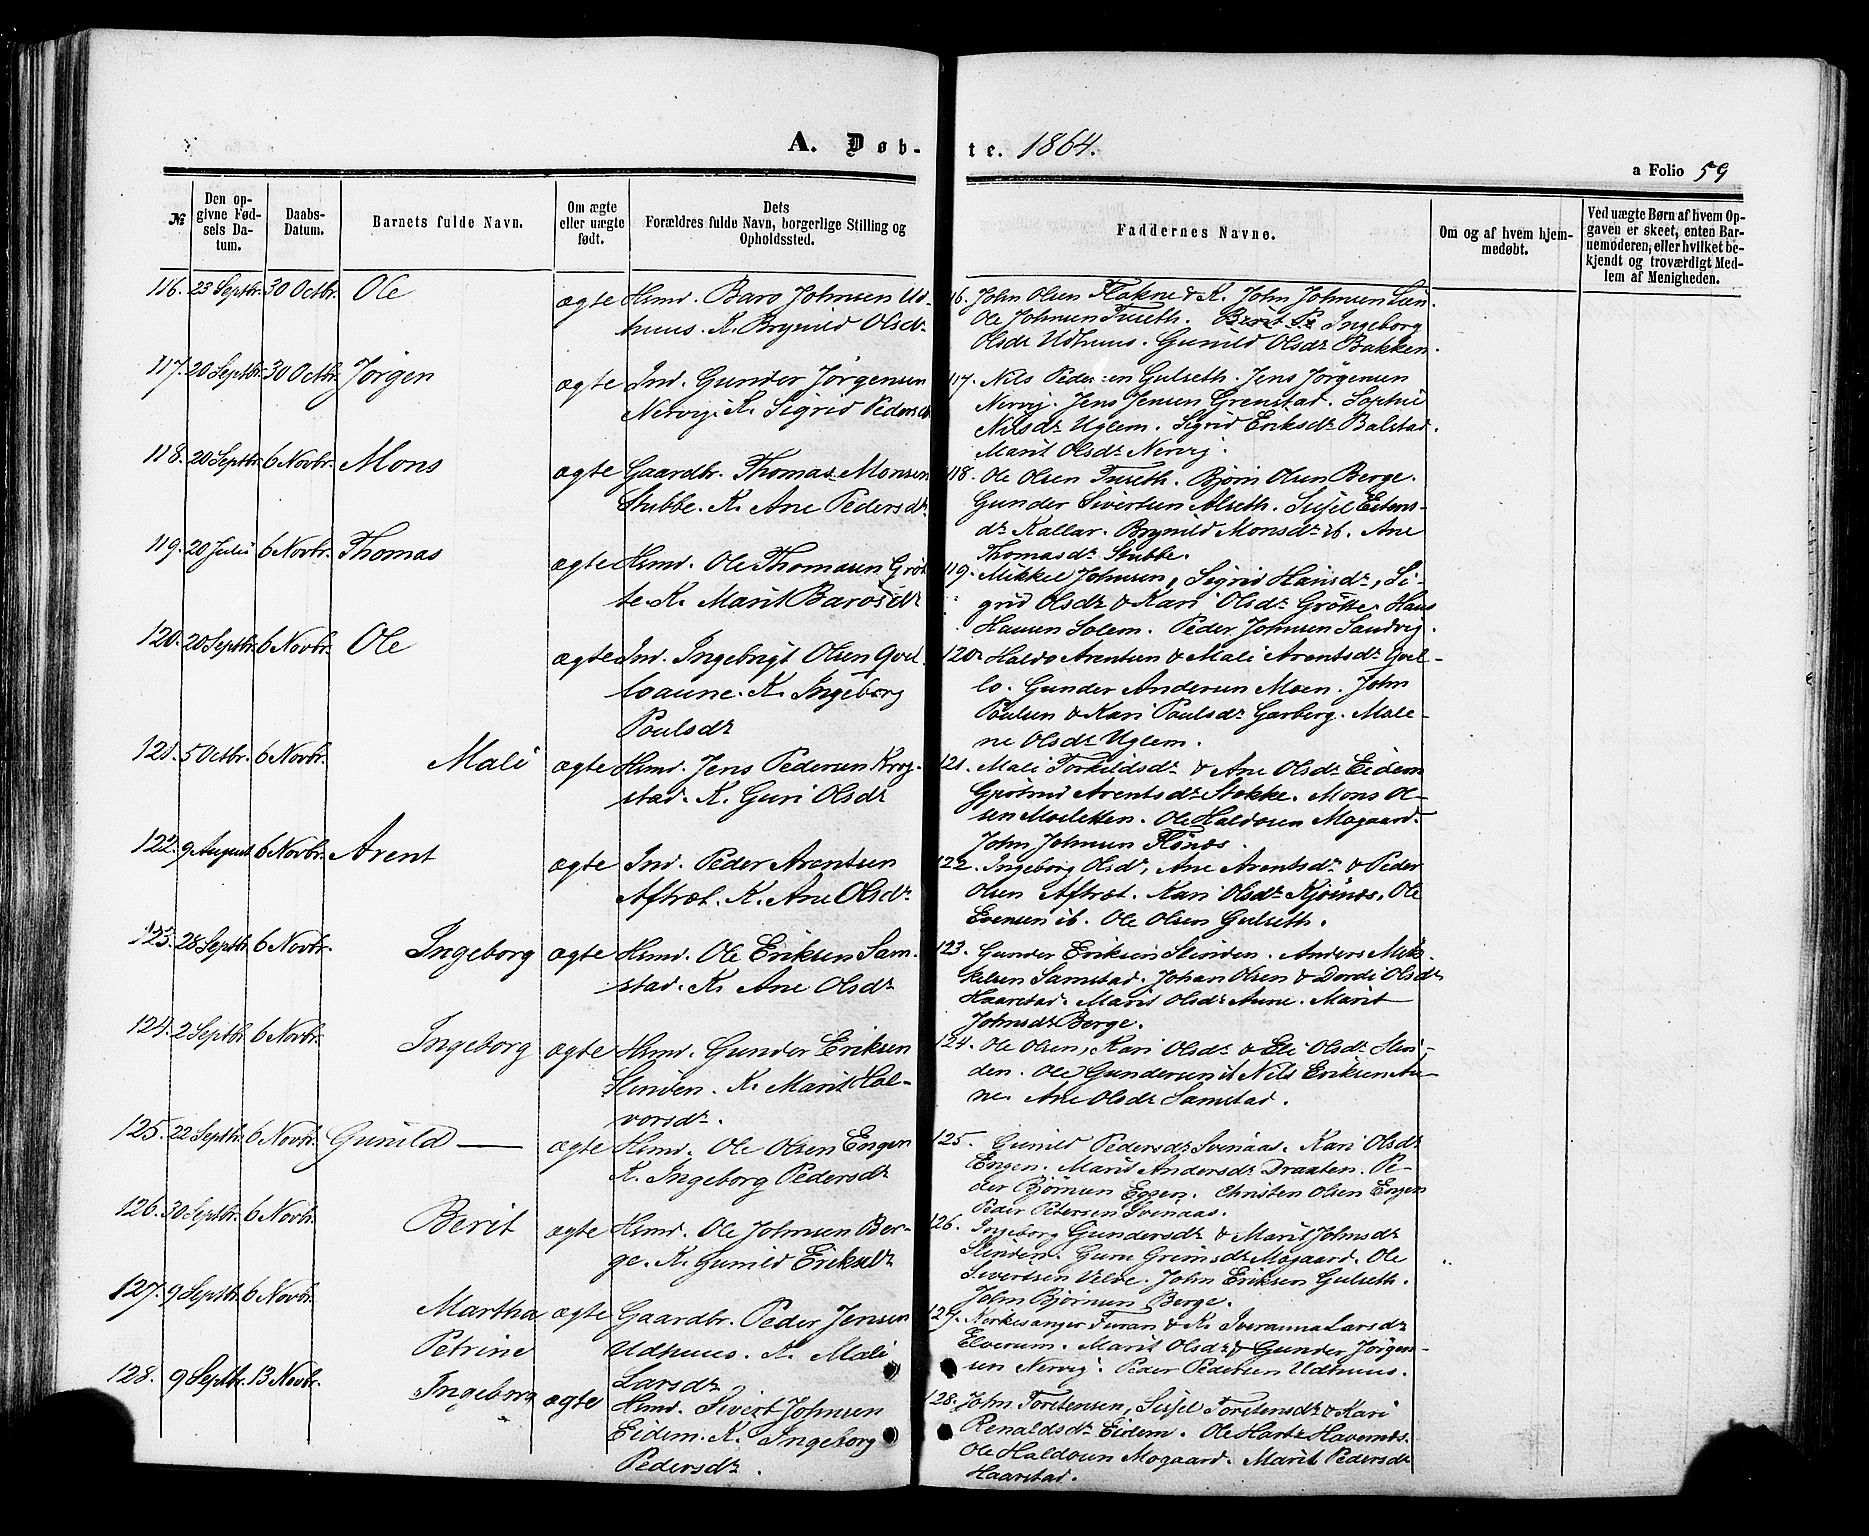 A. Døb-te. 1864.
a Folio 59
№
Den opgivne Fødsels Datum.
Daabs-Datum.
Barnets fulde Navn.
Om ægte eller uægte født.
Dets Forældres fulde Navn, borgerlige Stilling og Opholdssted.
Faddernes Navne.
Om og af hvem hjemmedøbt.
Ved uægte Børn af hvem Opgaven er skeet, enten Barnemoderen, eller hvilket bekjendt og troværdigt Medlem af Menigheden.
116. 23 Septbr. 30 Octbr. Ole ægte Hsmd. Baro Johnsen Ud-
huus. K. Brynild Olsdr
16. John Olsen Flakne & K. John Johnsen
Ole Johnsen Tuseth. Ingeborg
Olsdr Udhuus. Gunild Olsdr Bakken.
117. 20 Septbr. 30 Octbr. Jørgen ægte Ind. Gunder Jørgensen
Nervij. K. Sigrid Pedersdr
117. Nils Pedersen Gulseth. Jens Jørgensen
Nervij. Jens Jensen Grenstad. Sophie
Nilsdr Uglem. Sigrid Eriksdr Balstad.
Marit Olsdr Nervij.
118. 20 Septbr. 6 Novbr. Mons ægte Gaardbr. Thomas Monsen
Stubbe. K. Ane Pedersdr.
118. Ole Olsen Tuseth. Bjørn Olsen Berge.
Gunder Sivertsen Alseth. Sisel Estens-
dr Kallar. Brynild Monsdr ib. Ane
Thomasdr Stubbe.
119. 20 Julii 6 Novbr. Thomas ægte Hsmd. Ole Thomasen Grøt
te. K. Marit Barosdr
119. Mikkel Johnsen, Sigrid Hansdr, Si-
grid Olsdr & Kari Olsdr Grøtte. Hans
Hansen Solem. Peder Johnsen Sandvij.
120. 20 Septbr. 6 Novbr. Ole ægte Ind. Ingebrigt Olsen Qvel-
loaune. K. Ingeborg
Poulsdr
120. Haldo Arentsen & Mali Arentsdr Qvel-
lo. Gunder Andersen Moen. John
Poulsen & Kari Poulsdr Garberg. Male-
ne Olsdr Uglem.
121. 5 Octbr. 6 Novbr. Mali ægte Hsmd. Jens Pedersen Krog-
stad. K. Guri Olsdr
121. Mali Torkildsdr & Ane Olsdr Eidem
Gjertrud Arentsdr Stokke. Mons Ol-
sen Moeletten. Ole Haldosen Mogaard.
John Johnsen Flønes.
122. 9 August 6 Novbr. Arent ægte Ind. Peder Arentsen
Aftret. K. Ane Olsdr.
122. Ingeborg Olsdr, Ane Arentsdr & Peder
Olsen Aftret. Kari Olsdr Kjøsnes. Ole
Evensen ib. Ole Olsen Gulseth.
123. 28 Septbr. 6 Novbr. Ingeborg ægte Hsmd. Ole Eriksen Sam-
stad. K. Ane Olsdr
123. Gunder Eriksen Slinden. Anders Mik-
kelsen Samstad. Johan Olsen & Dordi Olsdr
Haarstad. Marit Olsdr Aune. Marit
Johnsdr Berge.
124. 2 Septbr. 6 Novbr. Ingeborg ægte Hsmd. Gunder Eriksen
Slinden. K. Marit Hal-
vorsdr.
124. Ole Olsen, Kari Olsdr & Eli Olsdr Slin-
den. Ole Gundersen ib Nils Eriksen Au-
ne. Ane Olsdr Samstad.
125. 22 Septbr. 6 Novbr. Gunild — ægte Hsmd. Ole Olsen Engen
K. Ingeborg Pedersdr
125. Gunild Pedersdr Svinaas. Kari Olsdr
Engen. Marit Andersdr Draaten. Pe-
der Bjørnsen Eggen. Christen Olsen Engen
Peder Petersen Svinaas.
126. 30 Septbr. 6 Novbr. Berit ægte Hsmd. Ole Johnsen Ber-
ge. K. Gunild Eriksdr
126. Ingeborg Gundersdr & Marit Johnsdr
Slinden. Guru Grimsdr Mogaard. Ole
Sivertsen Velve. John Eriksen Gulseth.
John Bjørnsen Berge.
127. 9 Septbr. 6 Novbr. Martha Petrine ægte Gaardbr. Peder Jensen
Udhuus. K. Mali
Larsdr
127. Kirkesanger Furan & K. Iveranna Larsdr
Elverum. Marit Olsdr & Gunder Jørgen-
sen Nervij. Peder Pedersen Udhuus.
128. 9 Septbr. 13 Novbr. Ingeborg ægte Hsmd. Sivert Johnsen
Eidem. K. Ingeborg
Pedersdr.
128. John Torstensen, Sisel Torstensdr & Kari
Renaldsdr Eidem. Ole Havernes.
Ole Haldosen Mogaard. Marit Pedersdr
Haarstad.